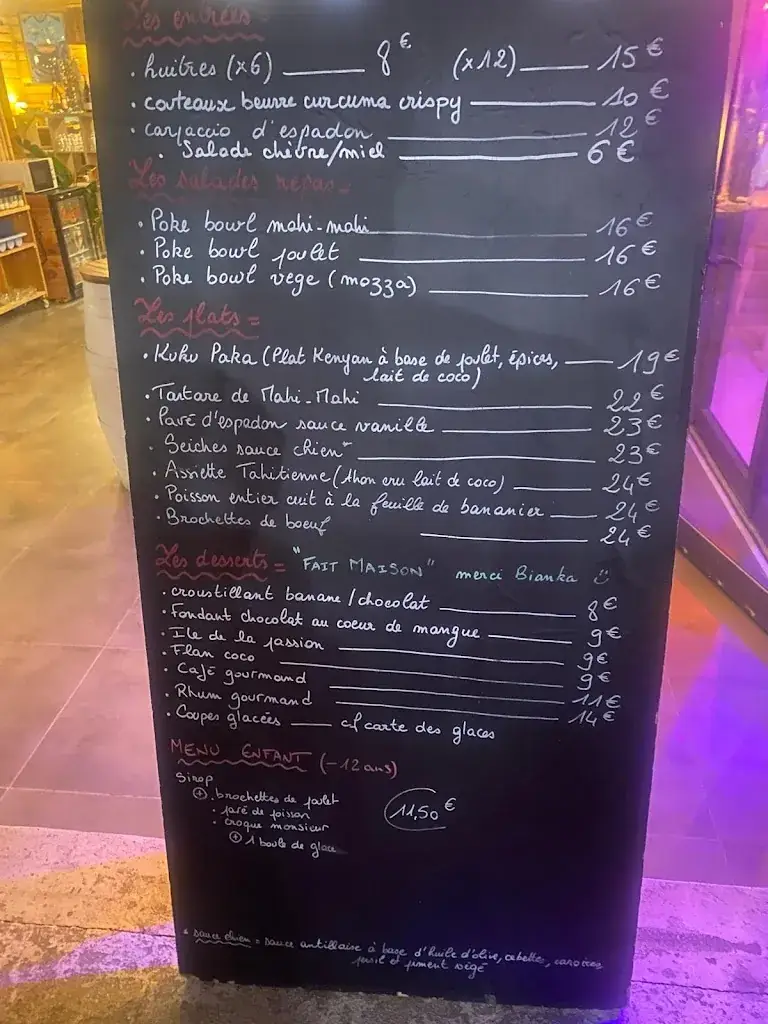 Les entrées
. huitres (x6) 8€ (x12) 15€
. couteaux beurre curcuma crispy 10€
. carpaccio d'espadon 12€
. Salade chèvre/miel 6€
Les salades repas =
. Poke bowl mahi-mahi 16€
. Poke bowl poulet 16€
. Poke bowl vege (mozza) 16€
Les plats =
. Kuku Paka (Plat Kenyan à base de poulet, épices, 19€
lait de coco)
. Tartare de Mahi-Mahi 22€
. Pavé d'espadon sauce vanille 23€
. Seiches sauce chien* 23€
. Assiette Tahitienne (thon cru lait de coco) 24€
. Poisson entier cuit à la feuille de bananier 24€
. Brochettes de boeuf 24€
Les desserts = "FAIT MAISON" merci Bianka
. croustillant banane/chocolat 8€
. Fondant chocolat au coeur de mangue 9€
. Ile de la passion 9€
. Flan coco 9€
. Café gourmand 11€
. Rhum gourmand 14€
. Coupes glacées cf carte des glaces
MENU ENFANT (-12 ans)
Sirop
+ . brochettes de poulet 11,50€
. pavé de poisson
. croque monsieur
+ 1 boule de glace
* sauce chien = sauce antillaise à base d'huile d'olive, cebettes,
persil et piment végé